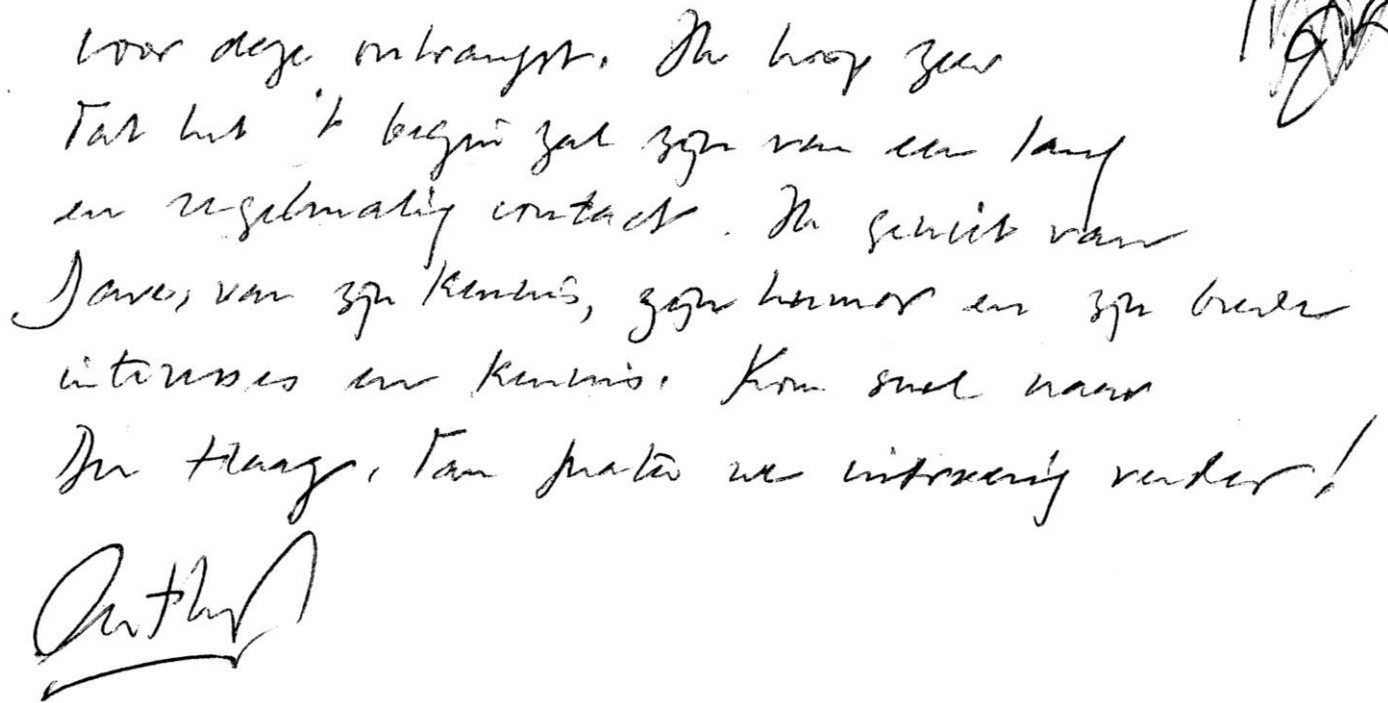 voor deze ontvangst. Ik hoop zeer
Dat het 't begin zal zijn van een lang
en regelmatig contact. Ik geniet van
Dave, van zijn kennis, zijn humor en zijn brede
interesses en kennis. Kom snel naar
Den Haag. Dan praten we verder!